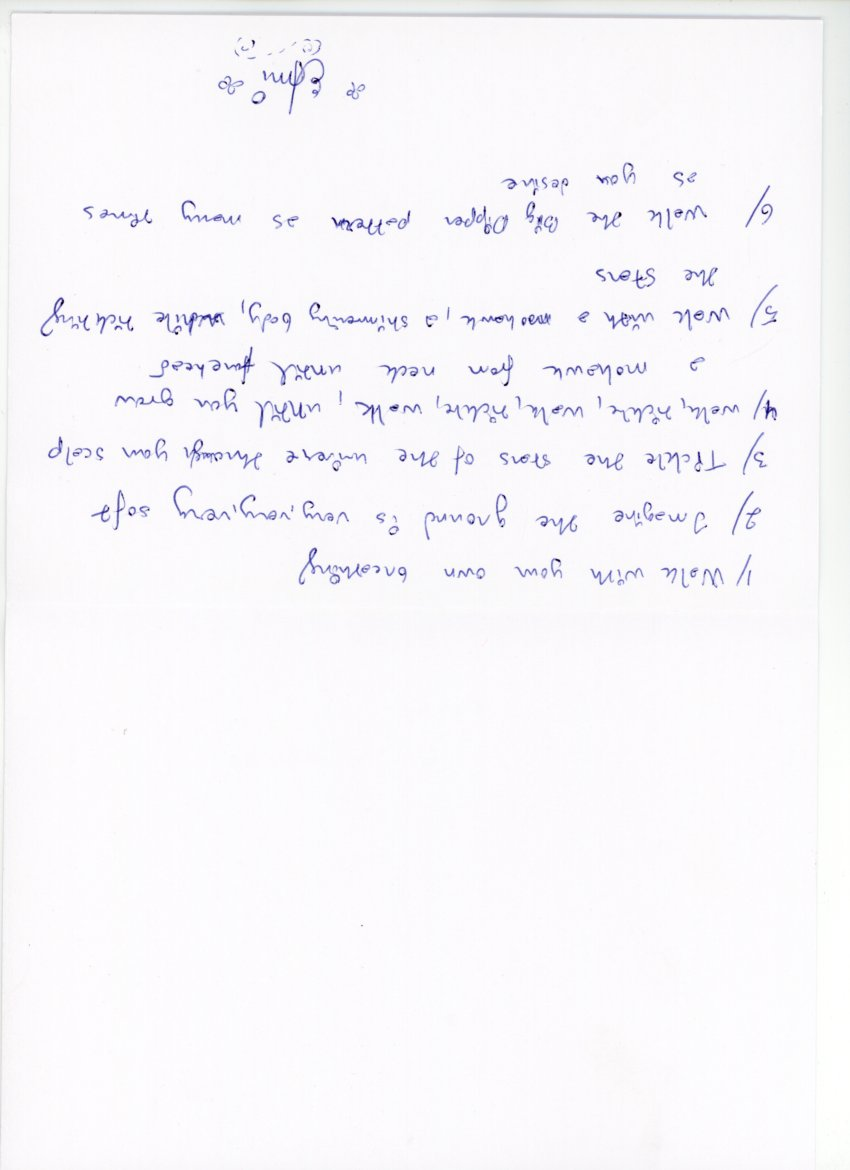 1/ Walk with your own breathing
2/ Imagine the ground is very, very, very soft
3/ Tickle the stars of the universe through your scalp
4/ walk, tickle, walk, tickle, walk, until you grow
a mohawk from neck until forehead
5/ walk with a mohawk, a shimmering body, while tickling
the stars
6/ walk the Big Dipper pattern as many times
as you desire